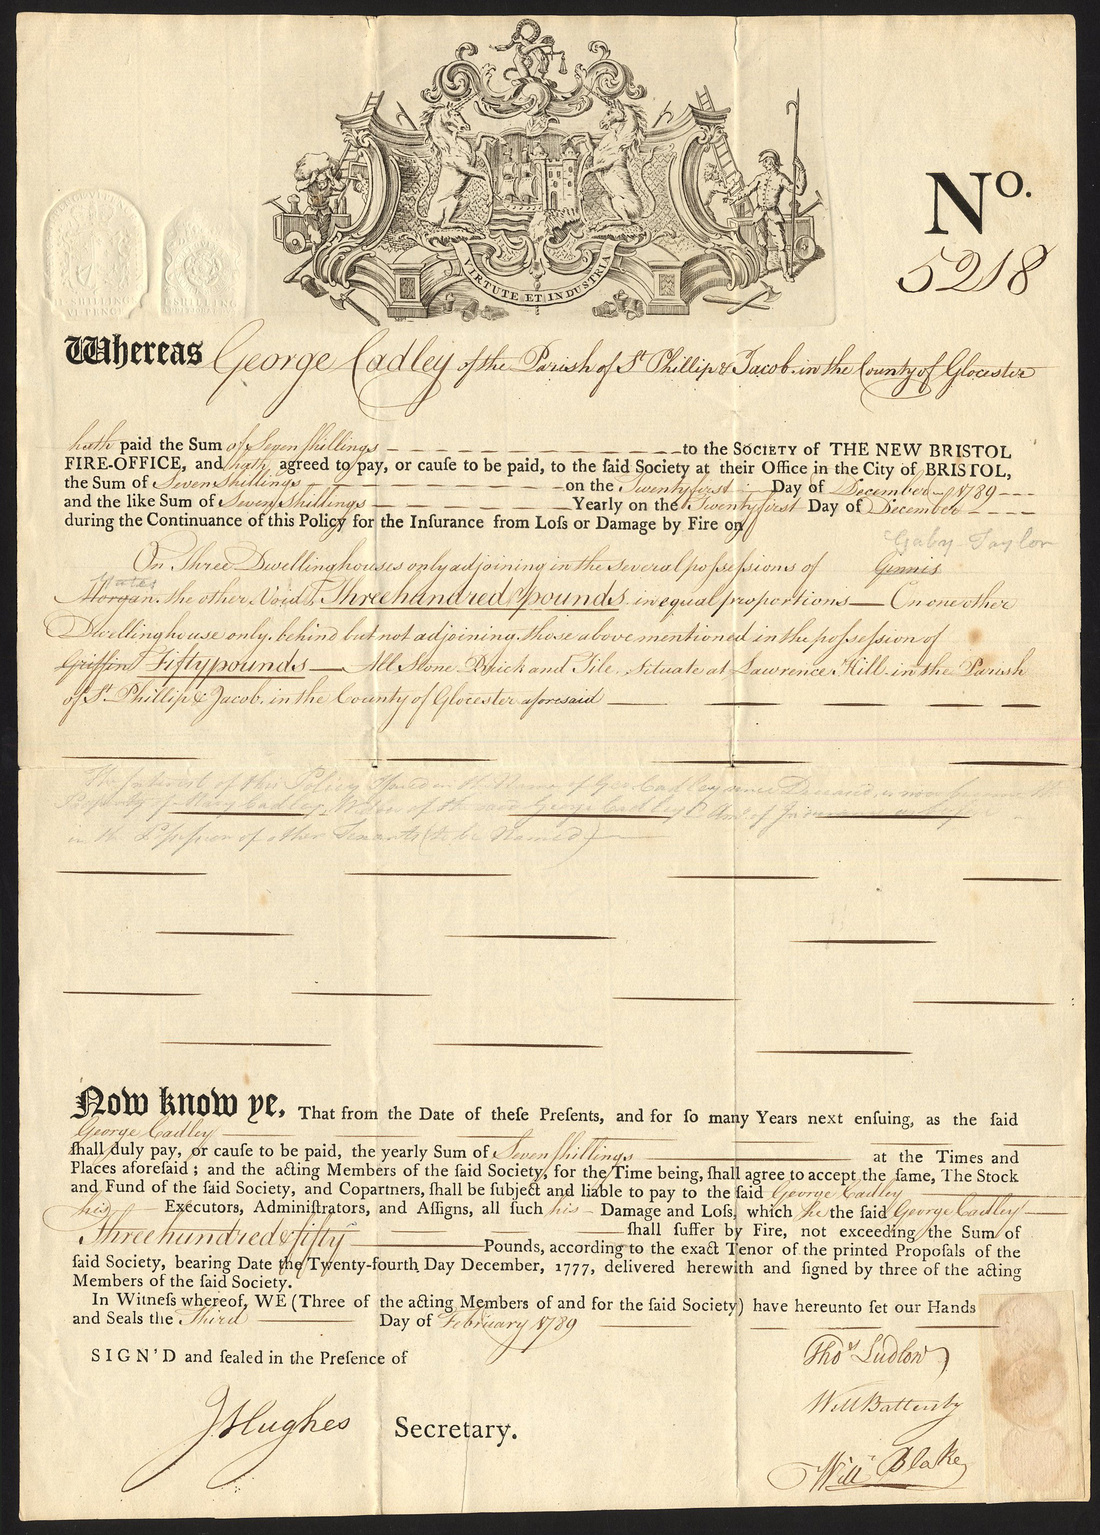 VI SHILLING
VI PENCE
SHILLING
VIRTUTE ET INDUSTRIA
No.
5218
Whereas George Cadley of the Parish of St Phillip & Jacob in the County of Glocester
hath paid the Sum of Seven shillings to the SOCIETY of THE NEW BRISTOL
FIRE-OFFICE, and hath agreed to pay, or cauſe to be paid, to the ſaid Society at their Office in the City of BRISTOL,
the Sum of Seven Shillings on the Twenty first Day of December 1789
and the like Sum of Seven Shillings Yearly on the Twenty first Day of December
during the Continuance of this Policy for the Inſurance from Loſs or Damage by Fire on
Gaby Taylor
On Three Dwellinghouses only adjoining in the several possessions of Ginnis
Morgan. the other Void Three hundred pounds in equal proportions — On one other
Dwellinghouse only. behind but not adjoining those above mentioned in the possession of
Griffin Fifty pounds — All Stone Brick and Tile. Situate at Lawrence Hill. in the Parish
of St Phillip & Jacob. in the County of Glocester aforesaid
The Interest of this Policy in the Name of Geo Cadley since Deceased, is now the
Property of Mary Cadley, Widow of the said George Cadley
in the Possession of other Tenants (to be Named)
Now know ye, That from the Date of theſe Preſents, and for ſo many Years next enſuing, as the ſaid
George Cadley
ſhall duly pay, or cauſe to be paid, the yearly Sum of Seven shillings at the Times and
Places aforeſaid; and the acting Members of the ſaid Society, for the Time being, ſhall agree to accept the ſame, The Stock
and Fund of the ſaid Society, and Copartners, ſhall be ſubject and liable to pay to the ſaid George Cadley
his Executors, Adminiſtrators, and Aſſigns, all ſuch his Damage and Loſs, which he the ſaid George Cadley
Three hundred & fifty ſhall ſuffer by Fire, not exceeding the Sum of
Pounds, according to the exact Tenor of the printed Propoſals of the
ſaid Society, bearing Date the Twenty-fourth Day December, 1777, delivered herewith and ſigned by three of the acting
Members of the ſaid Society.
In Witneſs whereof, WE (Three of the acting Members of and for the ſaid Society) have hereunto ſet our Hands
and Seals the Third Day of February 1789
SIGN'D and ſealed in the Preſence of
Thos Ludlow
Will Battersby
J Hughes Secretary.
Will Blake